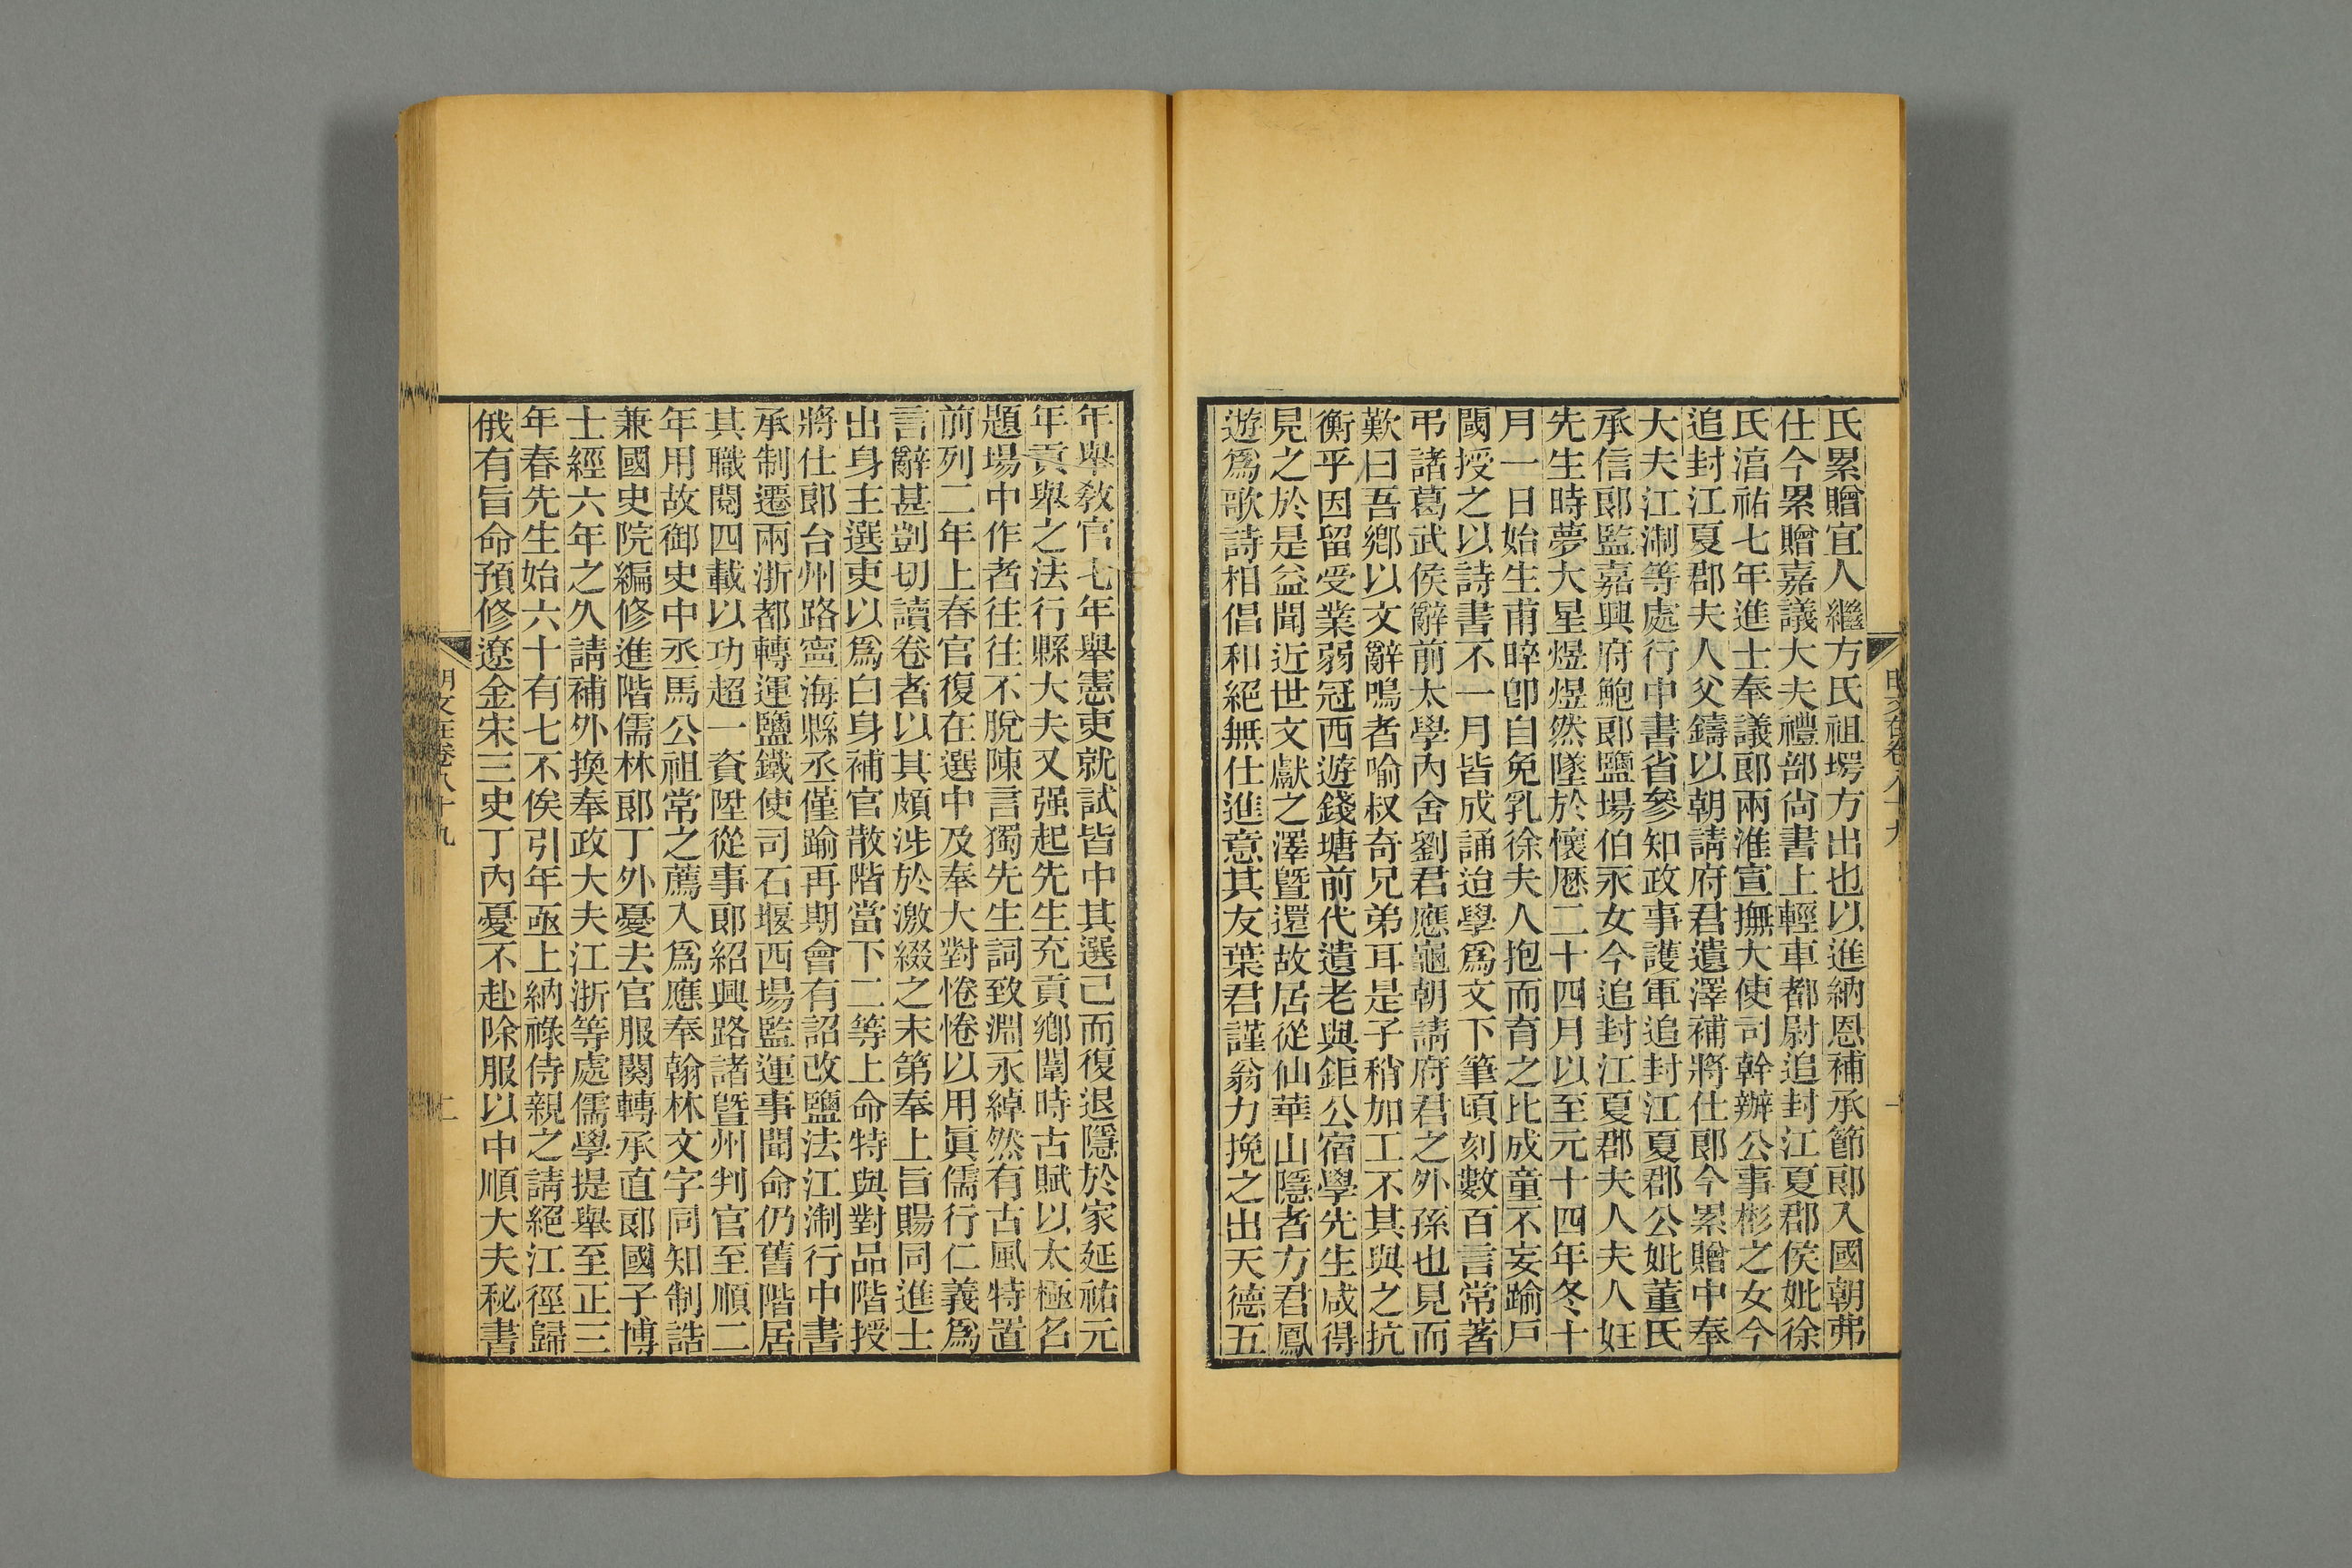 氏累贈宜人繼方氏祖堮方出也以進納恩補承節郎入國朝弗
仕今累贈嘉議大夫禮部尚書上輕車都尉追封江夏郡侯妣徐
氏湻祐七年進士奉議郎兩淮宣撫大使司幹辦公事彬之女今
追封江夏郡夫人父鑄以朝請府君遺澤補將仕郎今累贈中奉
大夫江淛等處行中書省參知政事護軍追封江夏郡公妣董氏
承信郎監嘉興府鮑郎鹽場伯永女今追封江夏郡夫人夫人妊
先生時夢大星煜煜然墜於懷厯二十四月以至元十四年冬十
月一日始生甫晬卽自免乳徐夫人抱而育之比成童不妄踰戸
閾授之以詩書不一月皆成誦迨學爲文下筆頃刻數百言常著
弔諸葛武侯辭前太學內舍劉君應龜朝請府君之外孫也見而
歎曰吾鄉以文辭鳴者喻叔奇兄弟耳是子稍加工不其與之抗
衡乎因留受業弱冠西遊錢塘前代遺老與鉅公宿學先生咸得
見之於是益聞近世文獻之澤曁還故居從仙華山隱者方君鳳
遊爲歌詩相倡和絕無仕進意其友葉君謹翁力挽之出天德五
明文在卷八十九
一
年舉敎官七年舉憲吏就試皆中其選已而復退隱於家延祐元
年貢舉之法行縣大夫又强起先生充貢鄉闈時古賦以太極名
題場中作者往往不脫陳言獨先生詞致淵永綽然有古風特置
前列二年上春官復在選中及奉大對惓惓以用眞儒行仁義爲
言辭甚剴切讀卷者以其頗涉於激綴之末第奉上旨賜同進士
出身主選吏以爲白身補官散階當下二等上命特與對品階授
將仕郎台州路寧海縣丞僅踰再期會有詔改鹽法江淛行中書
承制遷兩浙都轉運鹽鐵使司石堰西場監運事聞命仍舊階居
其職閱四載以功超一資陞從事郎紹興路諸曁州判官至順二
年用故御史中丞馬公祖常之薦入爲應奉翰林文字同知制誥
兼國史院編修進階儒林郎丁外憂去官服闋轉承直郎國子博
士經六年之久請補外換奉政大夫江浙等處儒學提舉至正三
年春先生始六十有七不俟引年亟上納祿侍親之請絕江徑歸
俄有旨命預修遼金宋三史丁內憂不赴除服以中順大夫秘書
明文在卷八十九
二